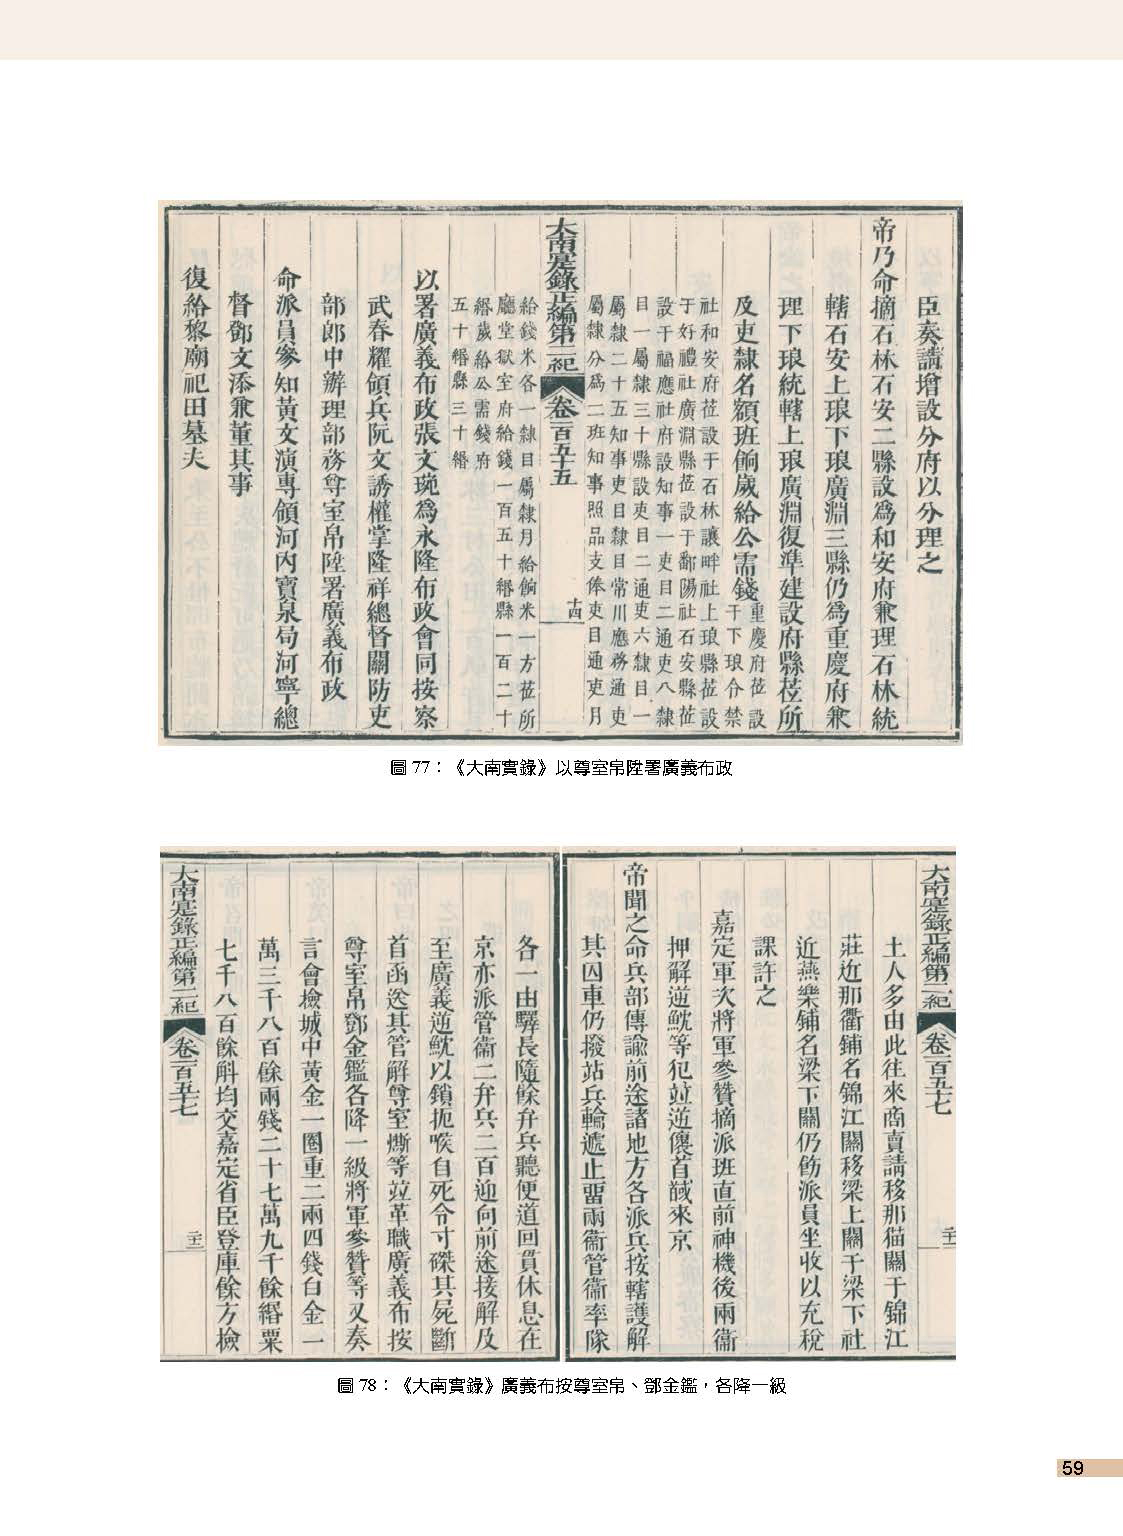 臣奏請增設分府以分理之
帝乃命摘石林石安二縣設爲和安府兼理石林統
轄石安上琅下琅廣淵三縣仍爲重慶府兼
理下琅統轄上琅廣淵復準建設府縣莅所
及吏隸名額班餉歲給公需錢重慶府莅設
于下琅仱禁
社和安府莅設于石林讓畔社上琅縣莅設
于好禮社廣淵縣莅設于鄱陽社石安縣莅
設于福應社府設知事一吏目二通吏八隸
目一屬隸三十縣設吏目二通吏六隸目一
屬隸二十五知事吏目隸目常川應務通吏
屬隸分爲二班知事照品支俸吏目通吏月
大南寔錄正編第二紀 卷一百五十五 十四
給錢米各一隸目屬隸月給餉米一方莅所
廳堂獄室府給錢一百五十緡縣一百二十
緡歲給公需錢府
五十緡縣三十緡
以署廣義布政張文琬爲永隆布政會同按察
武春耀領兵阮文誘權掌隆祥總督關防吏
部郎中辦理部務尊室帛陞署廣義布政
命派員參知黃文演專領河內寶泉局河寧總
督鄧文添兼董其事
復給黎廟祀田墓夫
圖 77：《大南實錄》以尊室帛陞署廣義布政
大南寔錄正編第二紀 卷一百五十七
土人多由此往來商賣請移那猫關于錦江
莊近那衢鋪名錦江關移梁上關于梁下社
近燕樂鋪名梁下關仍飭派員坐收以充稅
課許之
嘉定軍次將軍參贊摘派班直前神機後兩衞
押解逆䲣等犯竝逆儴首馘來京
帝聞之命兵部傳諭前途諸地方各派兵按轄護解
其囚車仍撥站兵輪遞止畱兩衞管衞率隊
各一由驛長隨餘弁兵聽便道回貫休息在
京亦派管衞二弁兵二百迎向前途接解及
至廣義逆䲣以鎖扼喉自死令寸磔其屍斷
首函送其管解尊室爋等竝革職廣義布按
尊室帛鄧金鑑各降一級將軍參贊等又奏
言會檢城中黃金一圈重二兩四錢白金一
萬三千八百餘兩錢二十七萬九千餘緡粟
七千八百餘斛均交嘉定省臣登庫餘方檢
大南寔錄正編第二紀 卷一百五十七
圖 78：《大南實錄》廣義布按尊室帛、鄧金鑑，各降一級
59